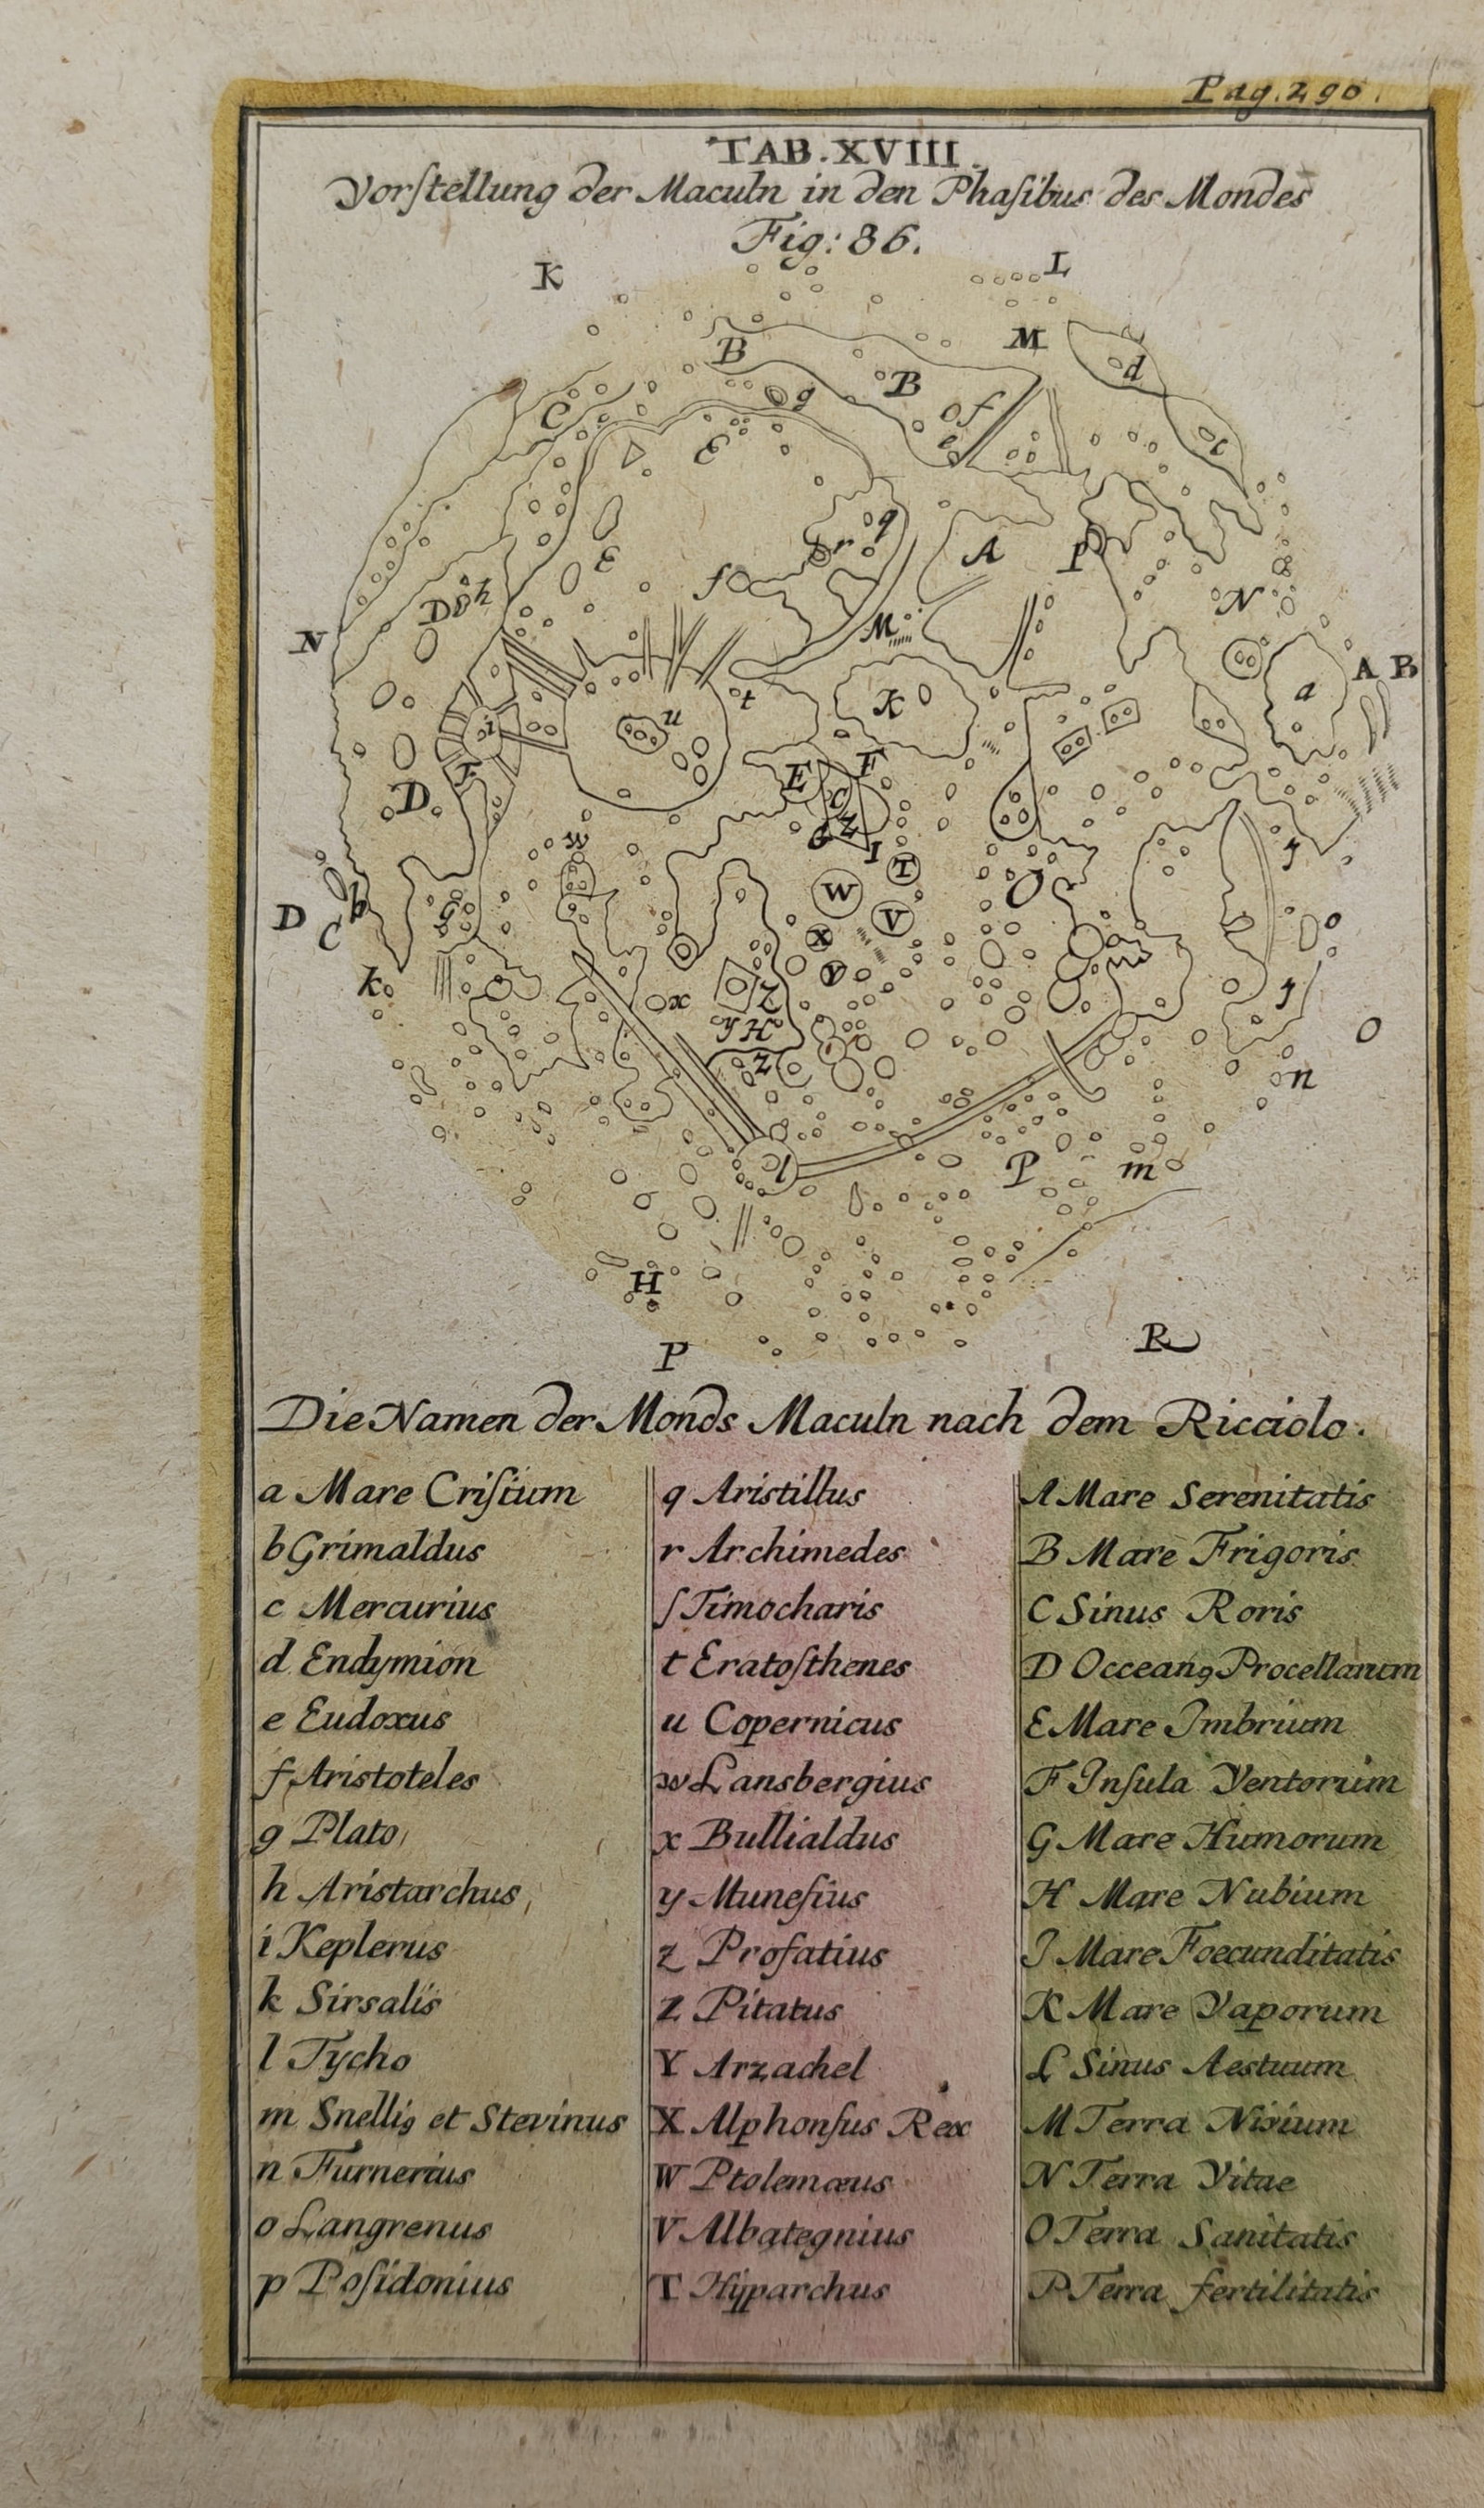 Pag. 290.
TAB. XVIII.
Vorſtellung der Maculn in den Phaſibus des Mondes
Fig: 86.
K L
M d
B
B
C g f
e i
E
q
A p
E r
ſ
D h N
M
N
A B
t K a
u
i
k E F
D C
G Z
w I T y
O
D b W
C G V o
X
k y
x Z y
y H
Z O
n
l P m
H
R
P
Die Namen der Monds Maculn nach dem Ricciolo.
a Mare Criſium
b Grimaldus
c Mercurius
d Endymion
e Eudoxus
f Aristoteles
g Plato
h Aristarchus
i Keplerus
k Sirsalis
l Tycho
m Snelli9 et Stevinus
n Furnerius
o Langrenus
p Poſidonius
q Aristillus
r Archimedes
ſ Timocharis
t Eratoſthenes
u Copernicus
w Lansbergius
x Bullialdus
y Muneſius
z Profatius
Z Pitatus
Y Arzachel
X Alphonſus Rex
W Ptolemæus
V Albategnius
T Hyparchus
A Mare Serenitatis
B Mare Frigoris
C Sinus Roris
D Occean9 Procellarum
E Mare Imbrium
F Inſula Ventorum
G Mare Humorum
H Mare Nubium
J Mare Foecunditatis
K Mare Vaporum
L Sinus Aestuum
M Terra Nivium
N Terra Vitae
O Terra Sanitatis
P Terra fertilitatis